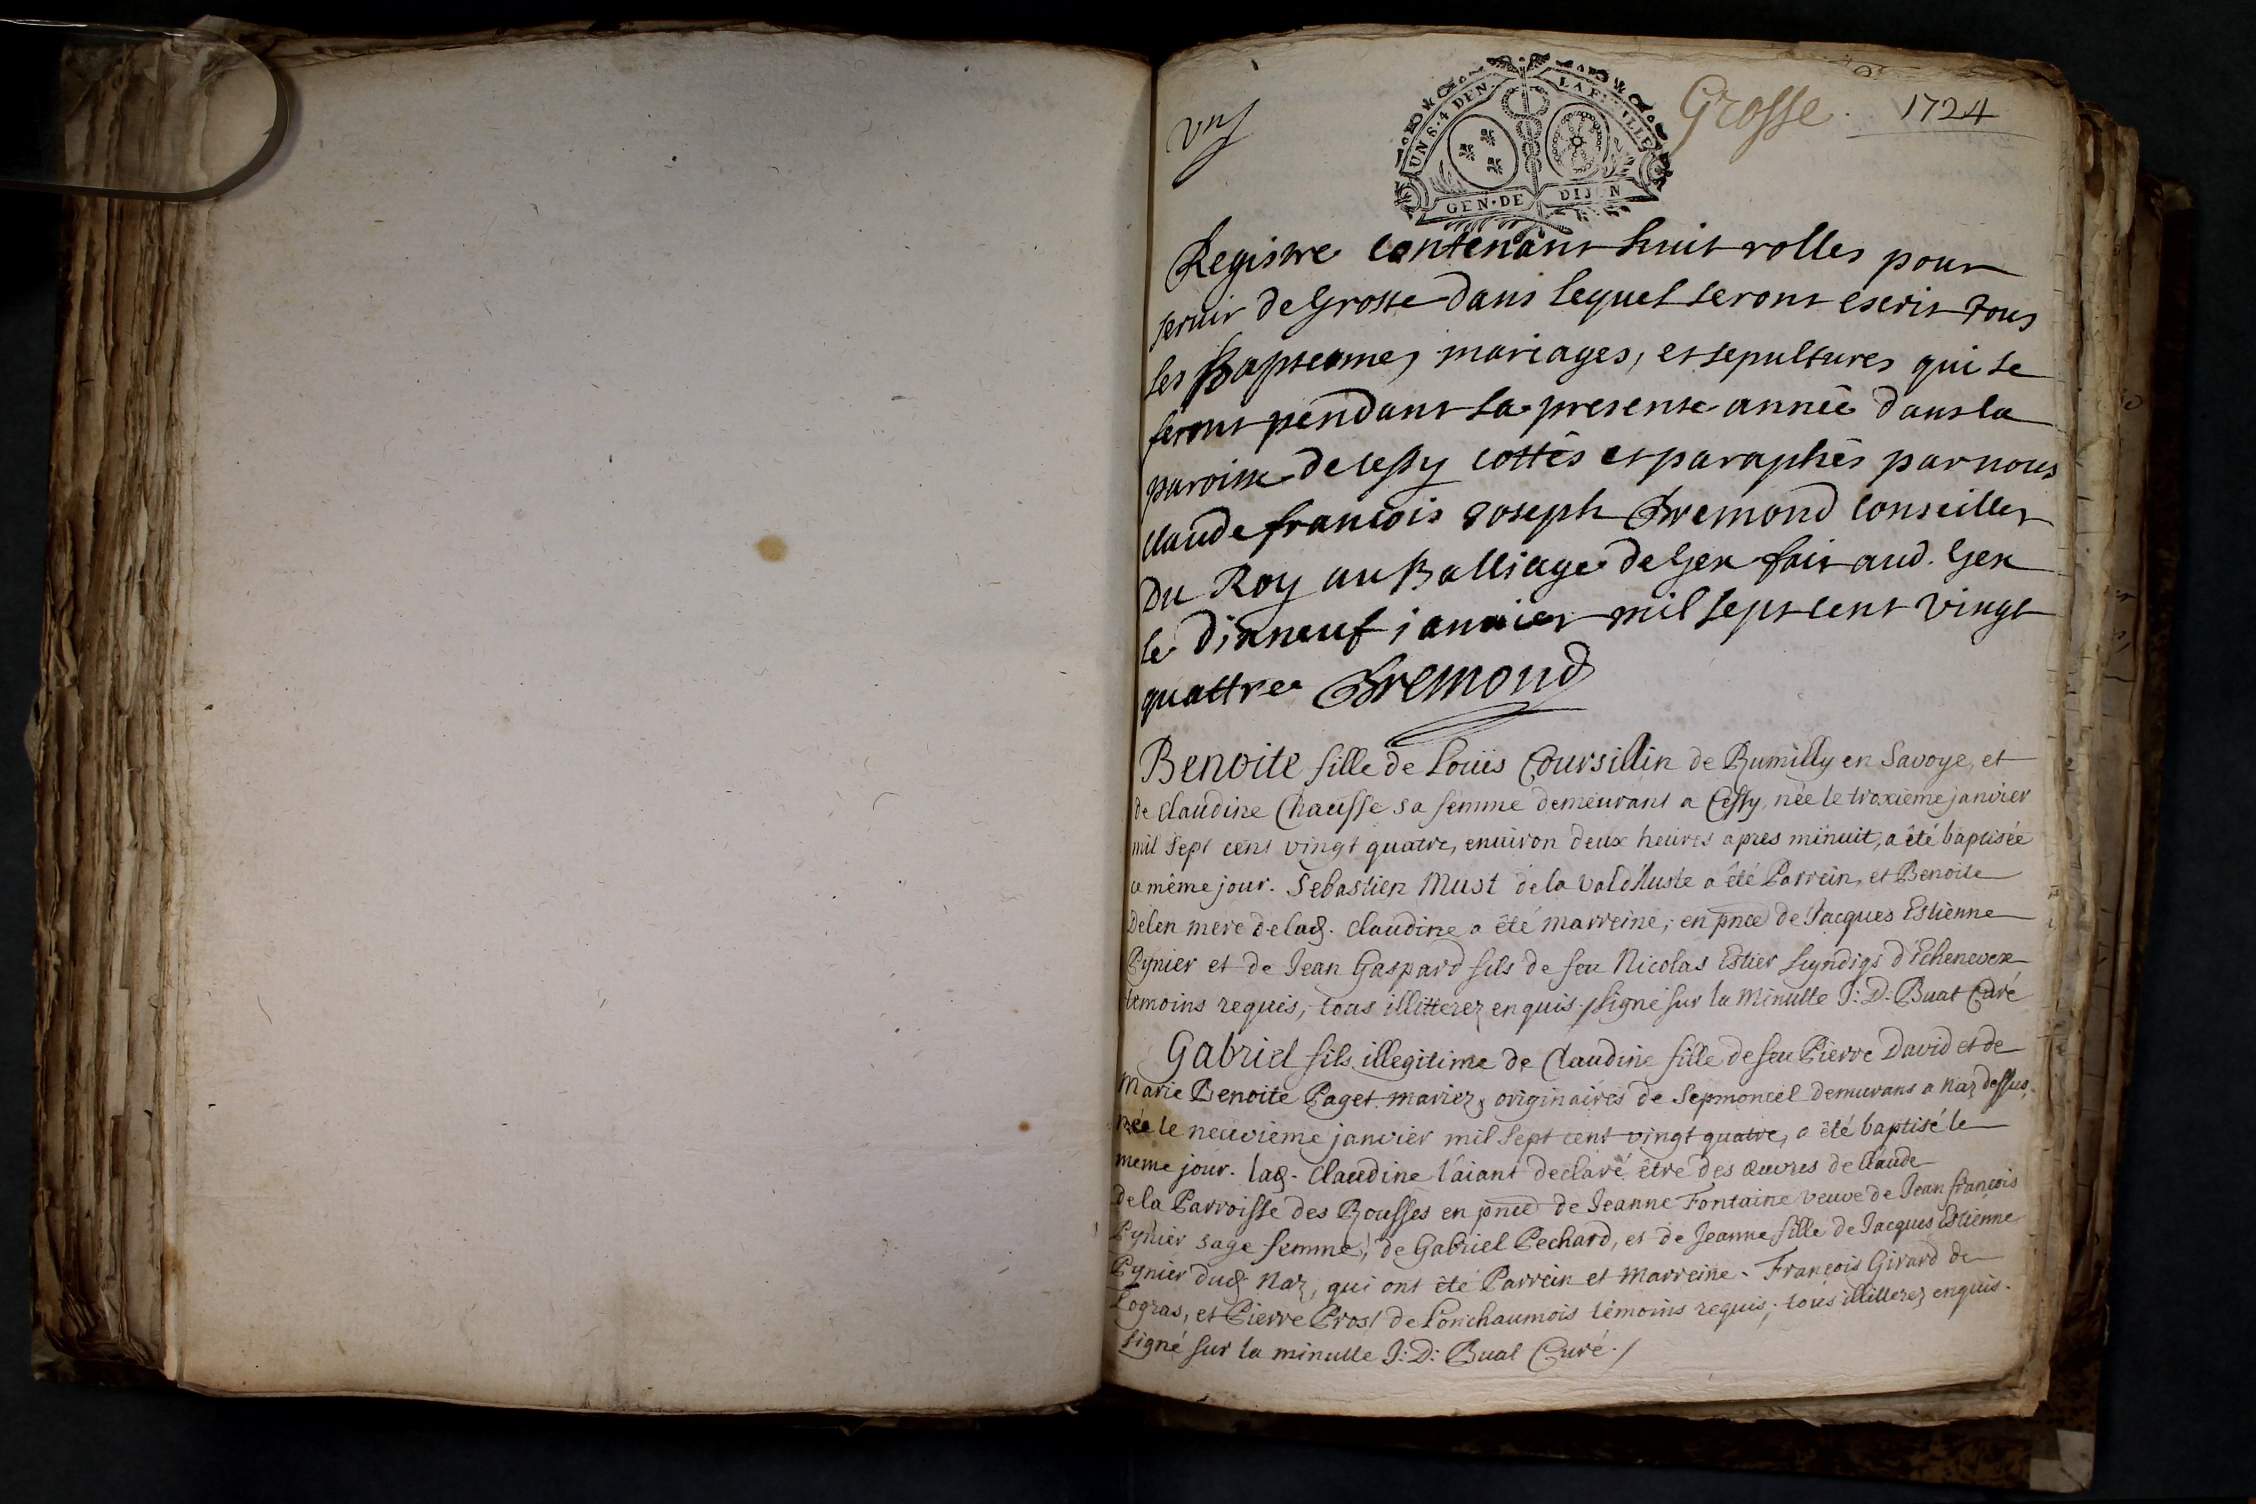 vn
UN S. 4 DEN. LA FEUILLE
GEN. DE DIJON
Grosse. 1724
Registre contenant huit rolles pour
seruir de Grosse dans lequel seront escrit tous
les Baptesmes, mariages, et sepultures qui se
feront pendant la presente année dans la
paroisse de Cessy cottés et paraphés par nous
Claude françois Joseph Bremond Conseiller
Du Roy au Balliage de Gex fait aud. Gex
le dixneuf januier mil sept cent vingt
quattre Bremond
Benoite fille de Loüis Coursillin de Rumilly en Savoye, et
de Claudine Chausse sa femme demeurant a Cessy, née le troxieme janvier
mil sept cent vingt quatre, enuiron deux heures apres minuit, a été baptisée
ce même jour. Sebastien Must de la Val d'Auste a été Parrein, et Benoite
Delen mere de lad. Claudine a été marreine; en pnce de Jacques Estienne
Pynier et de Jean Gaspard fils de feu Nicolas Estier Scyndigs d'Echenevex
temoins requis, tous illitterez enquis. signé sur la Minutte J: D: Buat Curé
Gabriel fils illegitime de Claudine fille de feu Pierre David et de
Marie Benoite Paget mariez, originaires de Sepmoncel demurans a Naz dessus,
née le neuvieme janvier mil sept cent vingt quatre, a été baptisé le
meme jour. lad. Claudine l'aiant declaré être des œuvres de Claude
de la Parroisse des Rousses en pnce de Jeanne Fontaine veuve de Jean françois
Pynier sage femme, de Gabriel Pechard, et de Jeanne fille de Jacques Estienne
Pynier dud. Naz, qui ont été Parrein et Marreine. François Girard de
Logras, et Pierre Prost de Lonchaumois témoins requis; tous illitterez enquis.
signé sur la minutte J: D: Buat Curé. /